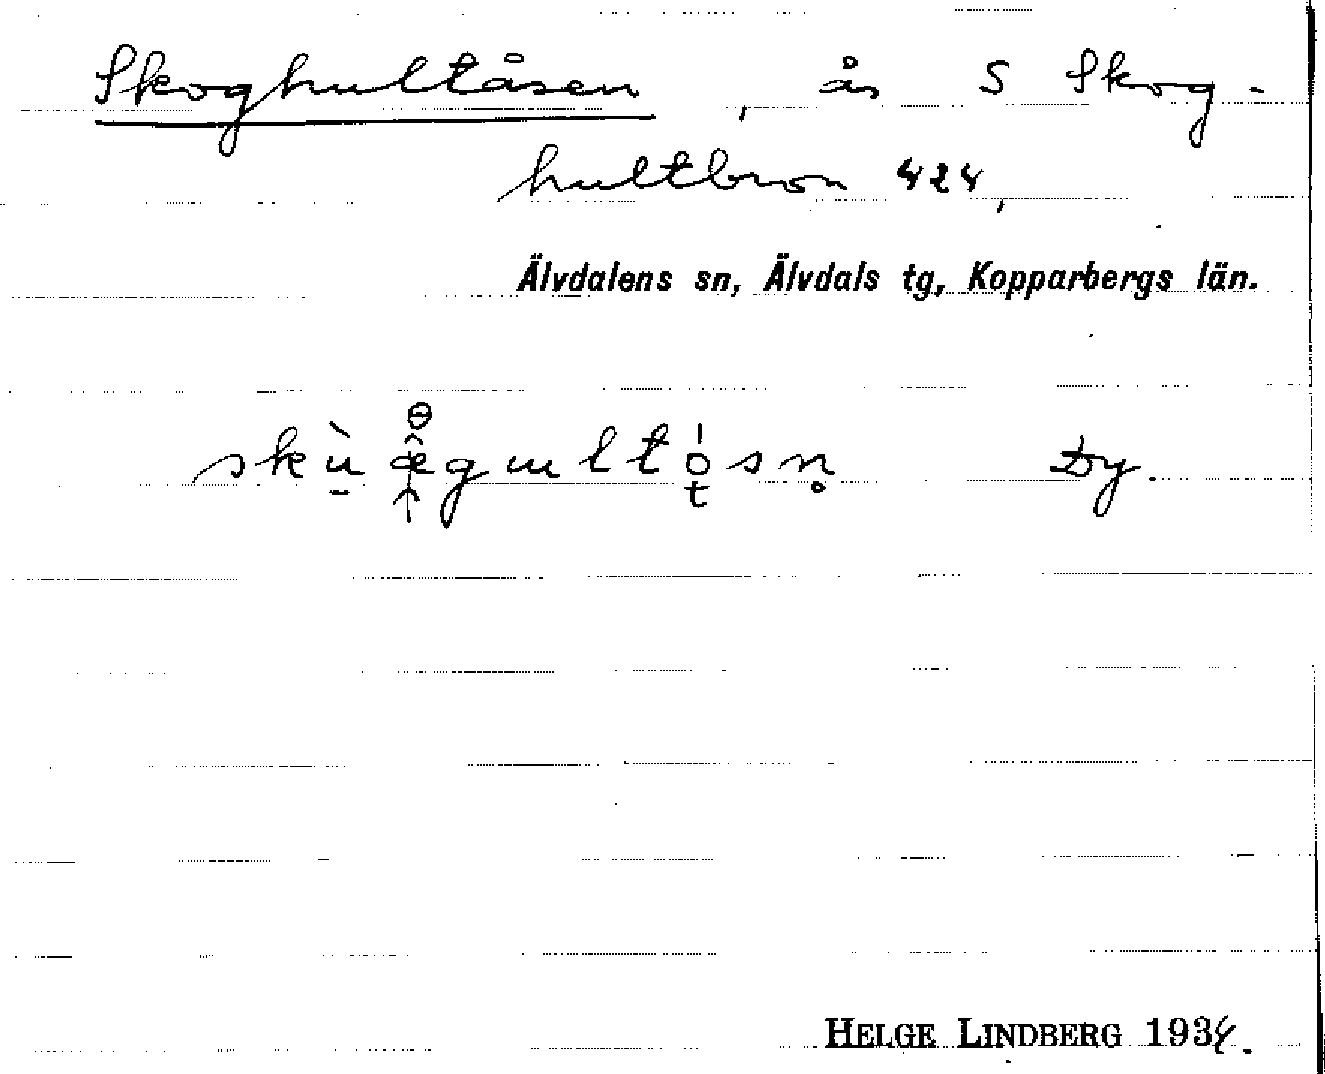 Skoghultåsen, ås S Skog-
hultbron 424,
Älvdalens sn, Älvdals tg, Kopparbergs län.
Dy.
HELGE LINDBERG 1934.